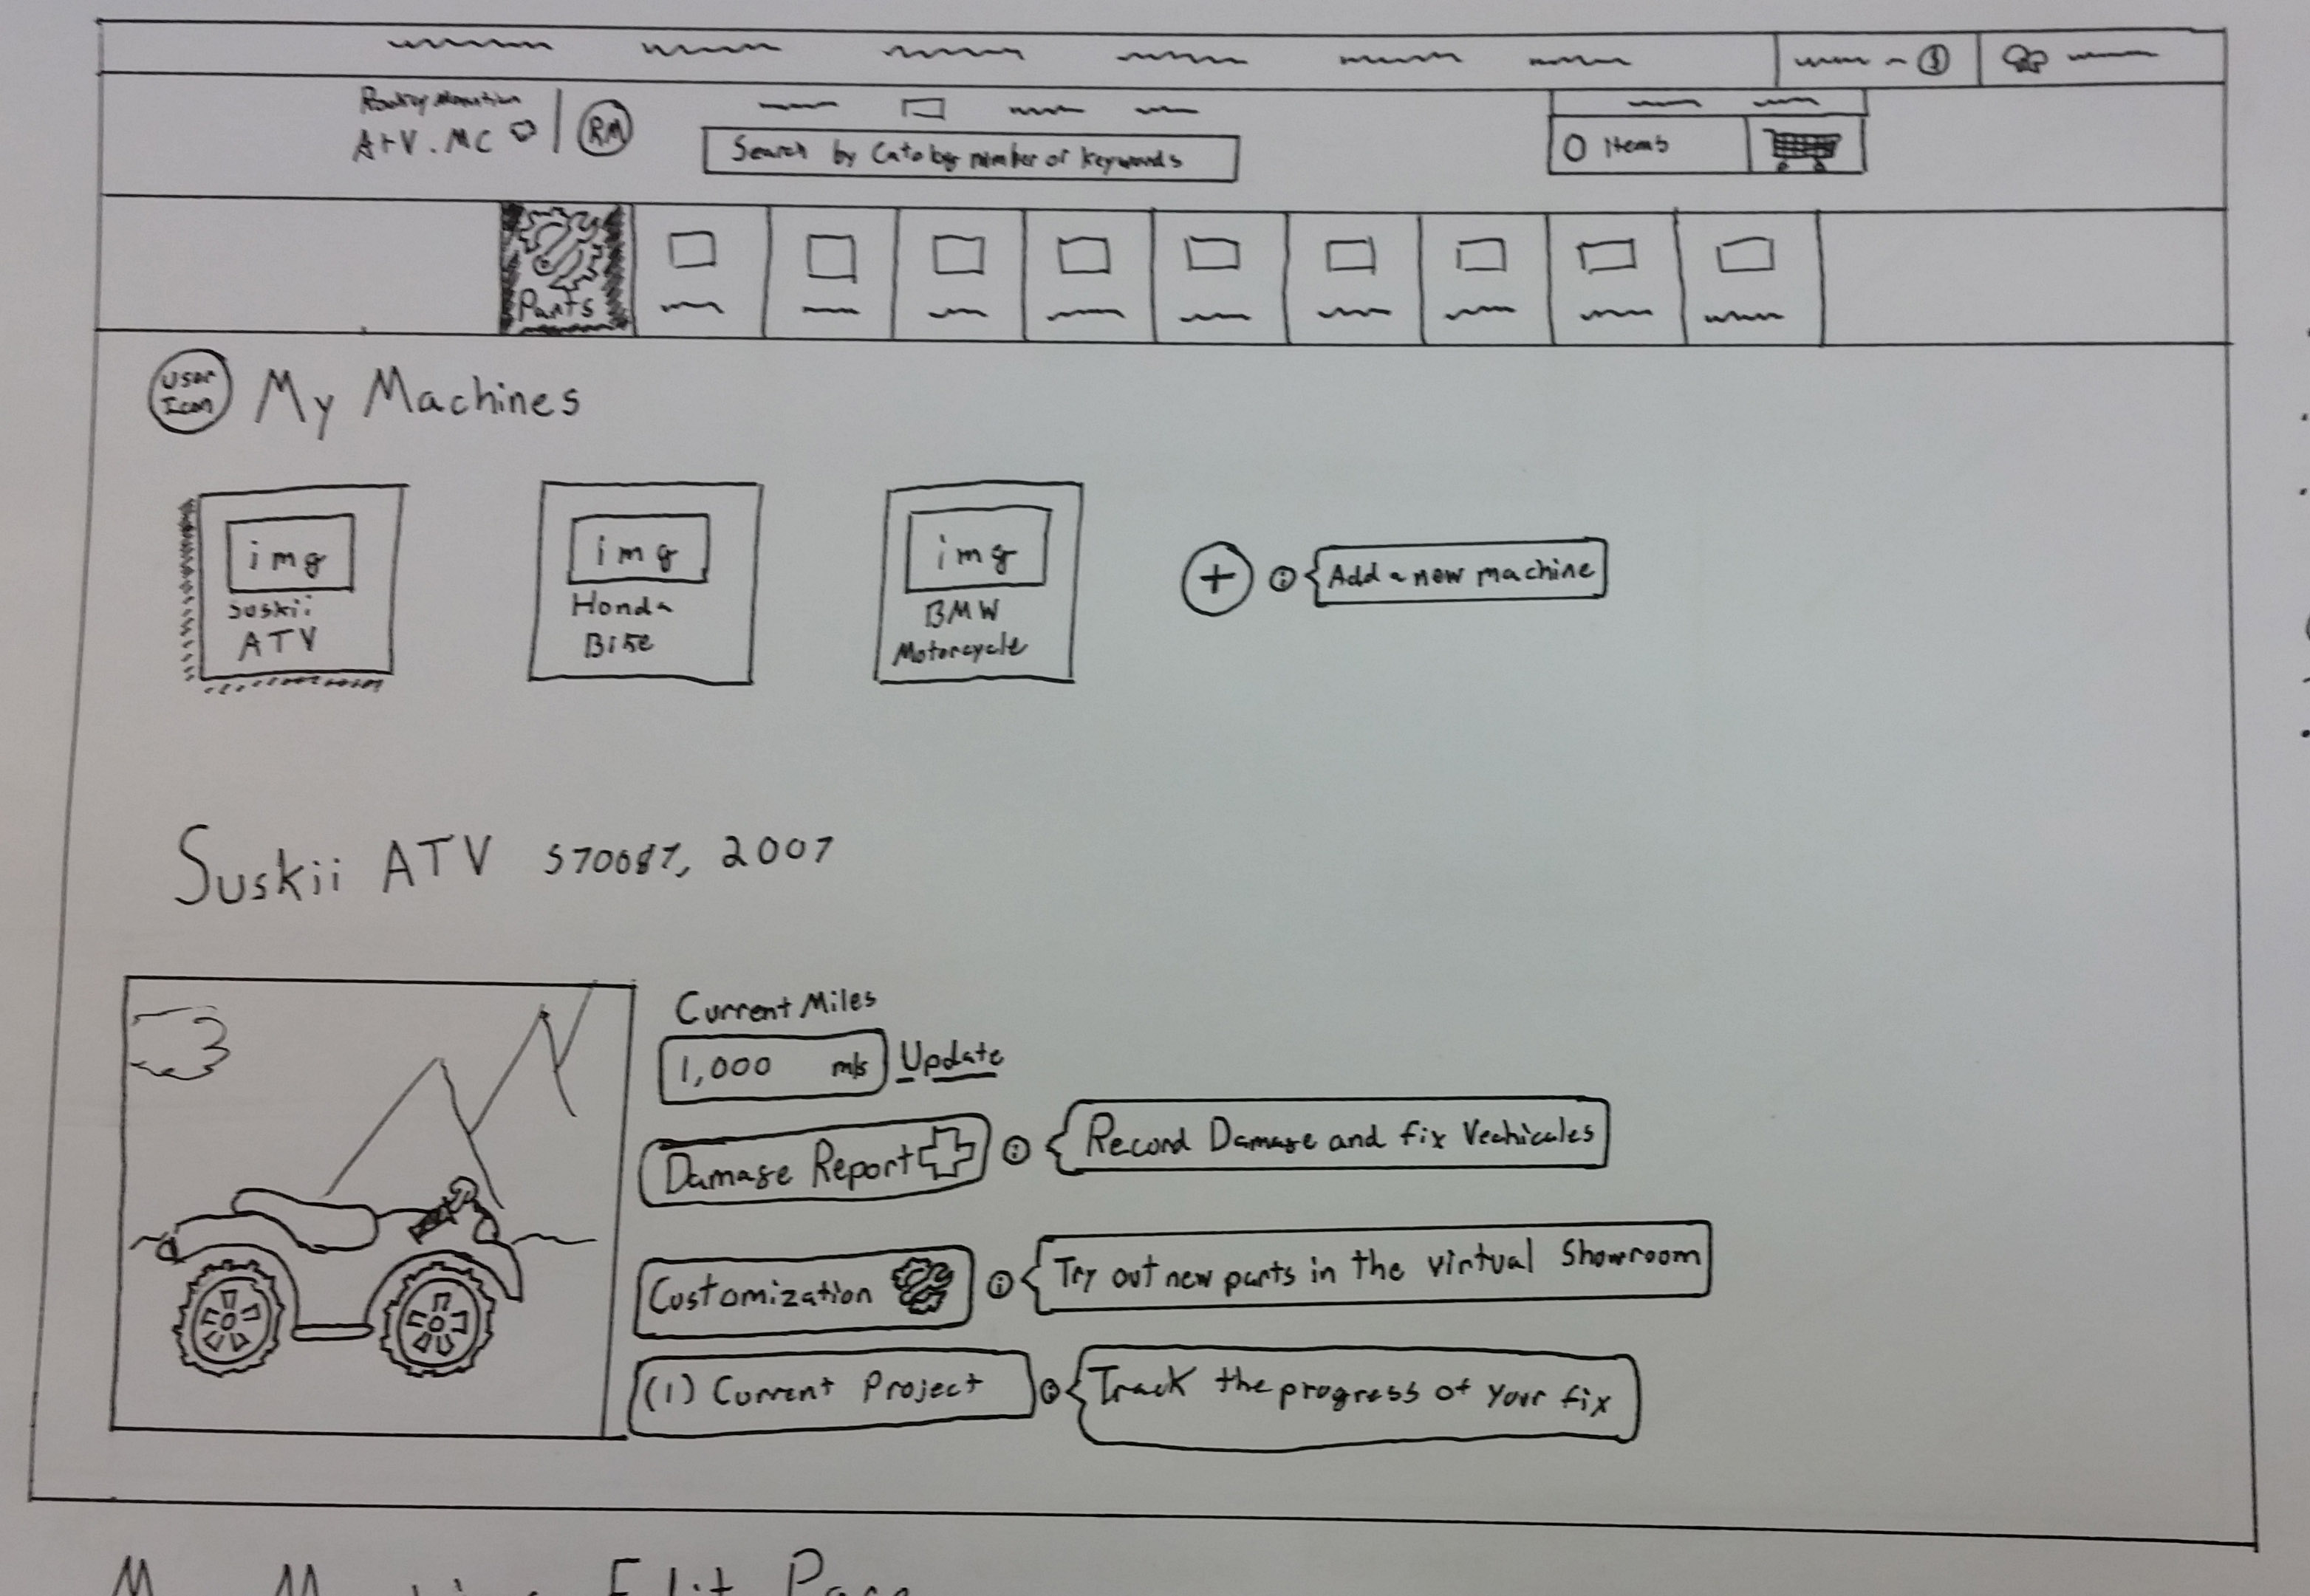 ATV.MC
RM
Search by Catolog number or keywords
0 Items
Parts
User
Icon
My Machines
img
Suskii
ATV
img
Honda
Bike
img
BMW
Motorcycle
+ i Add a new machine
Suskii ATV 570687, 2007
Current Miles
1,000 mls Update
Damage Report i Record Damage and fix Vechicales
Customization i Try out new parts in the virtual Showroom
(1) Current Project i Track the progress of your fix